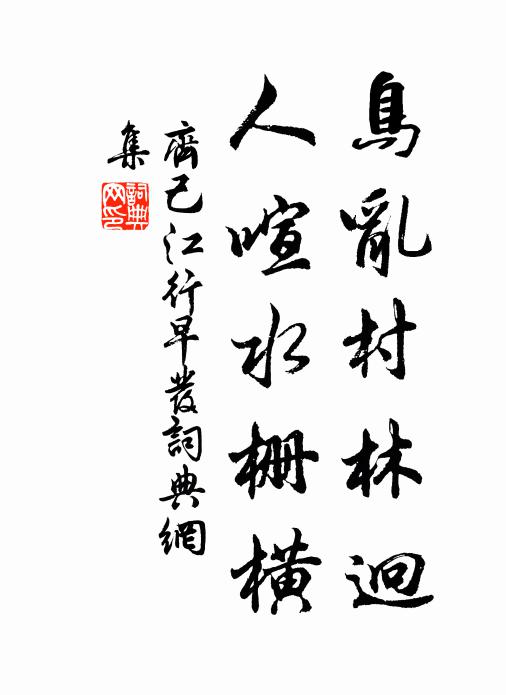 鳥亂村林迥
人喧水柵橫
齊己江行早發詞典網
集
詞典
网印